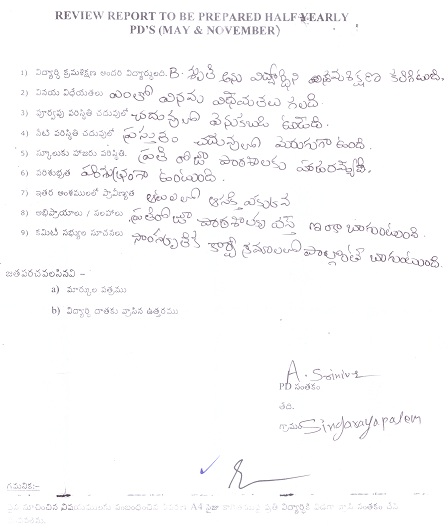 REVIEW REPORT TO BE PREPARED HALF YEARLY
PD'S (MAY & NOVEMBER)
1) విద్యార్థి క్రమశిక్షణ అందరి విద్యార్థులది. B. శృతి అను విద్యార్థిని క్రమశిక్షణ కలిగినది.
2) వినయ విధేయతలు ఎంతో వినయ విధేయతలు గలది.
3) పూర్వపు పరిస్థితి చదువులో చదువులో వెనుకబడి ఉండేది.
4) నేటి పరిస్థితి చదువులో ప్రస్తుతం చదువులో మెరుగుగా ఉంది.
5) స్కూలుకు హాజరు పరిస్థితి. ప్రతి రోజు పాఠశాలకు హాజరవుతుంది.
6) పరిశుభ్రత పరిశుభ్రంగా ఉంటుంది.
7) ఇతర అంశములలో ప్రావీణ్యత ఆటలలో ఆసక్తి ఎక్కువ
8) అభిప్రాయాలు / సలహాలు ప్రతిరోజూ పాఠశాలకు వస్తే ఇంకా బాగుంటుంది.
9) కమిటీ సభ్యుల సూచనలు సాంస్కృతిక కార్యక్రమాలలో పాల్గొంటే బాగుంటుంది.
జతపరచవలసినవి –
a) మార్కుల పత్రము
b) విద్యార్థి దాతకు వ్రాసిన ఉత్తరము
A. Srinivas
PD సంతకం
తేది.
గ్రామం Singarayapalem
గమనిక:-